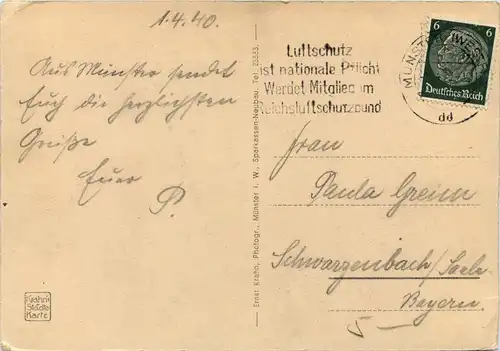 1.4.40.
Aus Münster sendet
Euch die herzlichsten
Grüße
Euer
P.
Krahn
Städte
Karte
Ernst Krahn, Photogr., Münster i. W., Sparkassen-Neubau, Tel.
Luftschutz
ist nationale Pflicht
Werdet Mitglied im
Reichsluftschutzbund
MÜNSTER (WESTF)
dd
6 6
Deutsches Reich
Frau
Paula
Schwarzenbach/Saale
Bayern.
5 —